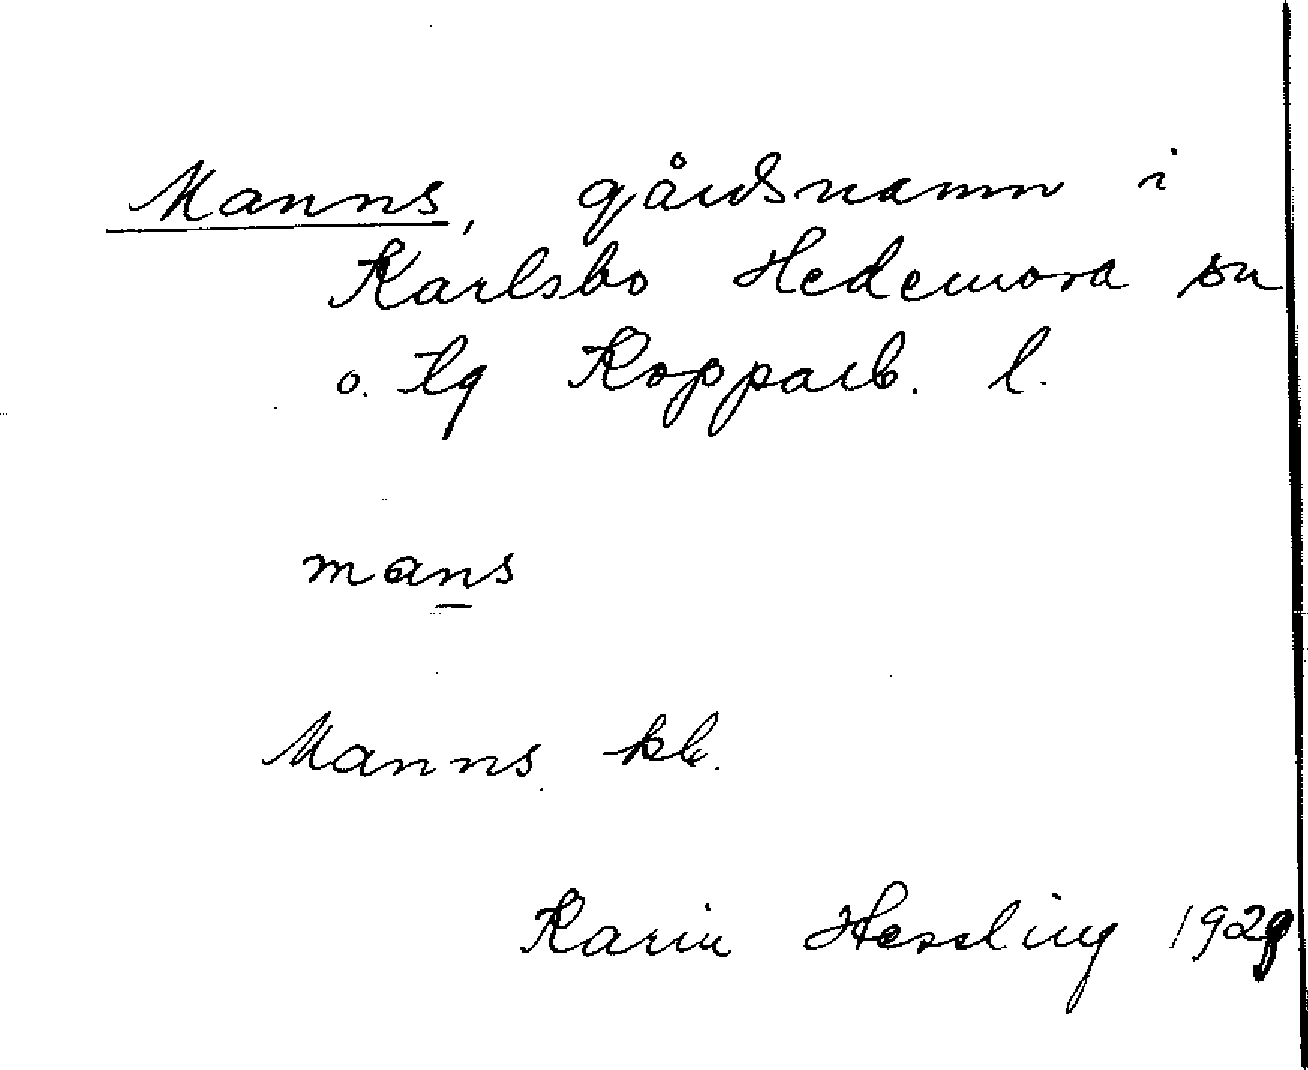 Manns, gårdsnamn i
Karlsbo Hedemora sn
o. tg Kopparb. l.
mans
Manns kb.
Karin Hessling 1929